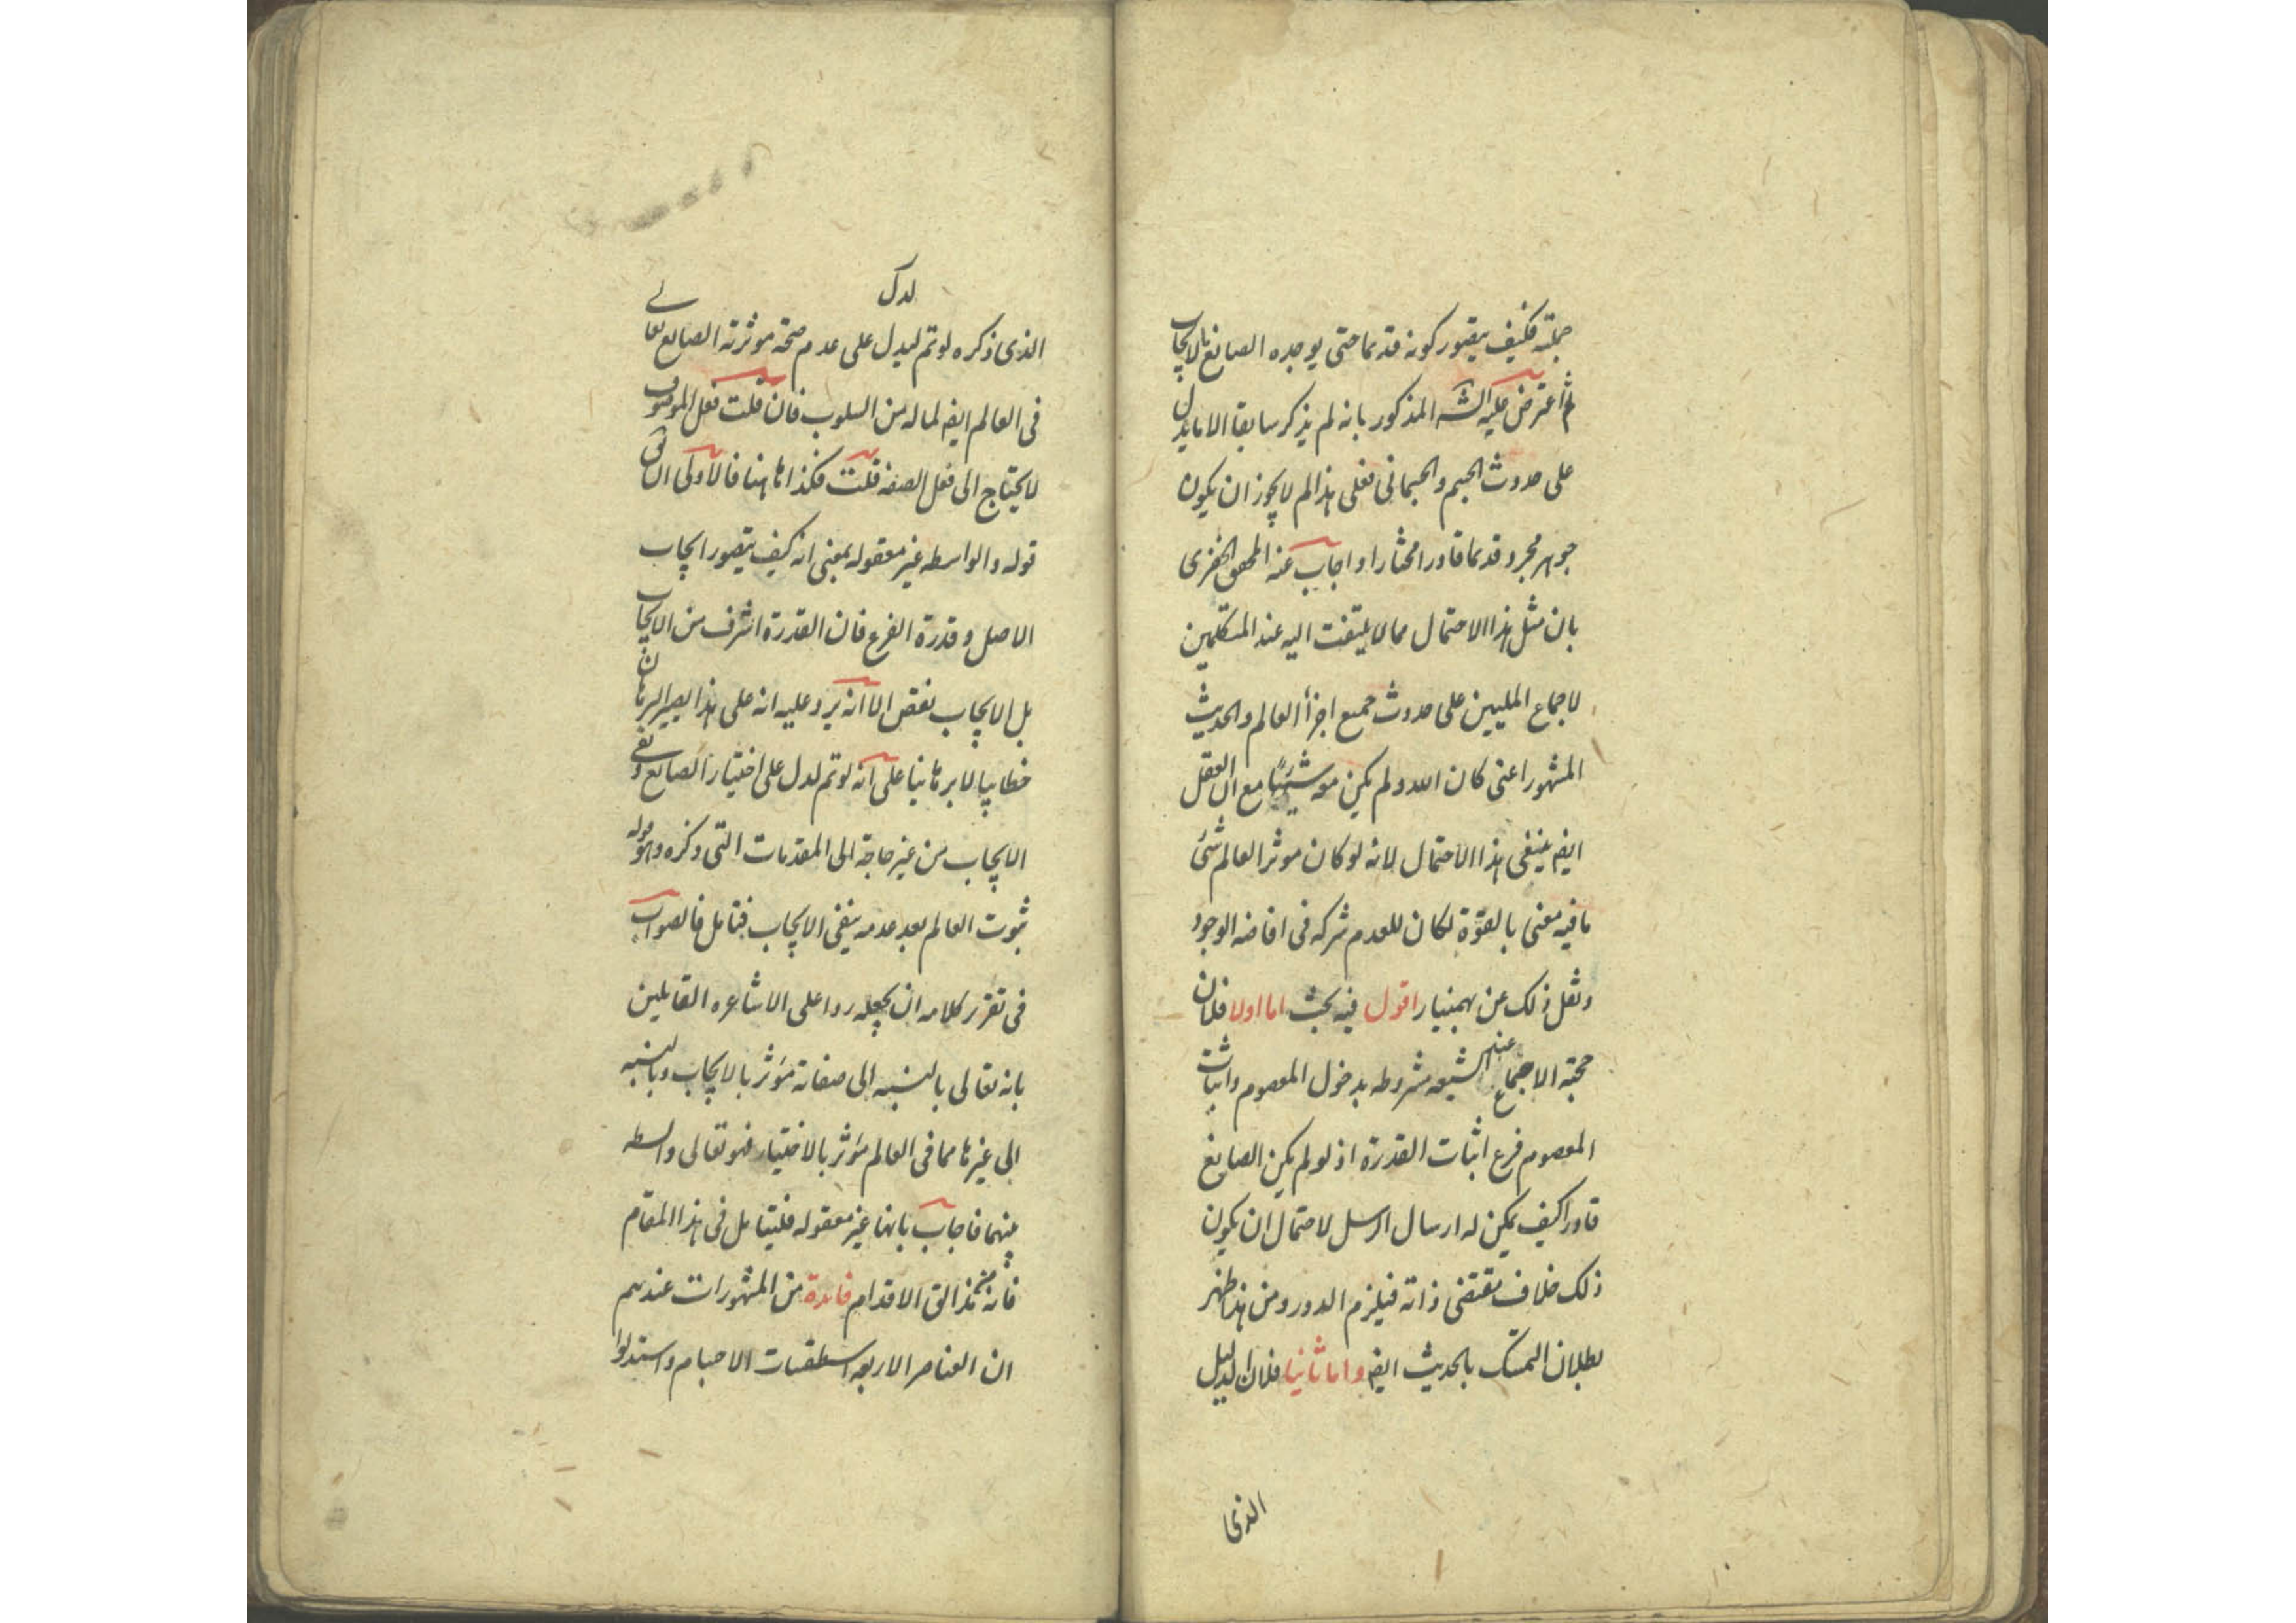 جملته فكيف يتصور كونه قديما حتى يوجده الصانع بالايجاب
ثم اعترض عليه الشه المذكور بانه لم يذكر سابقا الا ما يدل
على حدوث الجسم والجسمانى فعلى هذا لم لا يجوز ان يكون
جوهر مجرد قديما قادرا مختارا واجاب عنه المحقق الخفرى
بان مثل هذا الاحتمال مما لا يلتفت اليه عند المتكلمين
لاجماع المليين على حدوث جميع اجزأ العالم والحديث
المشهور اعنى كان الله ولم يكن معه شئ مع ان العقل
ايضه ينفى هذا الاحتمال لانه لو كان موثر العالم شئ
ما فيه معنى بالقوة لكان للعدم شركه فى افاضه الوجود
ونقل ذلك عن بهمنيار اقول فيه بحث اما اولا فلان
حجته الاجماع عند الشيعه مشروطه بدخول المعصوم واثبات
المعصوم فرع اثبات القدرة اذ لو لم يكن الصانع
قادرا كيف يمكن له ارسال الرسل لاحتمال ان يكون
ذلك خلاف مقتضى ذاته فيلزم الدور ومن هذا ظهر
بطلان التمسك بالحديث ايضه واما ثانيا فلان الدليل
الذى
لدل
الذى ذكره لو تم ليدل على عدم صحة موثرته الصانع تعالے
فى العالم ايضه لما له من السلوب فان قلت فعل الموصوف
لا يحتاج الى فعل الصفه قلت فكذا هاهنا فالاولى ان
قوله والواسطه غير معقوله بمعنى انه كيف يتصور ايجاب
الاصل وقدرة الفرع فان القدرة اشرف من الايجاب
بل الايجاب نقص الا انه يرد عليه انه على هذا يصير البرهان
خطابيا لا برهانيا على انه لو تم لدل على اختيار الصانع ونفى
الايجاب من غير حاجة الى المقدمات التى ذكره وهو قوله
ثبوت العالم بعد عدمه ينفى الايجاب فتامل فالصواب
فى تقرير كلامه ان يجعله ردا على الاشاعره القايلين
بانه تعالى بالنسبه الى صفاته مؤثر بالايجاب وبالنسبه
الى غيرها مما فى العالم مؤثر بالاختيار فهو تعالى واسطه
بينهما فاجاب بانها غير معقوله فليتامل فى هذا المقام
فانه من مزالق الاقدام فايدة من المشهورات عندهم
ان العناصر الاربعه اسطقسات الاجسام واستدلوا